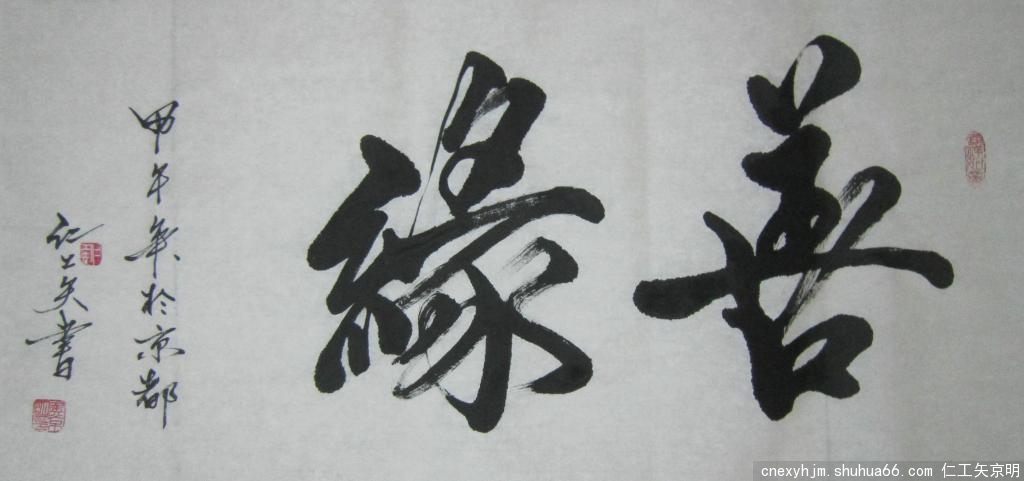 善緣
甲午年於京都
仁工矢書
cnexyhjm.shuhua66.com 仁工矢京明